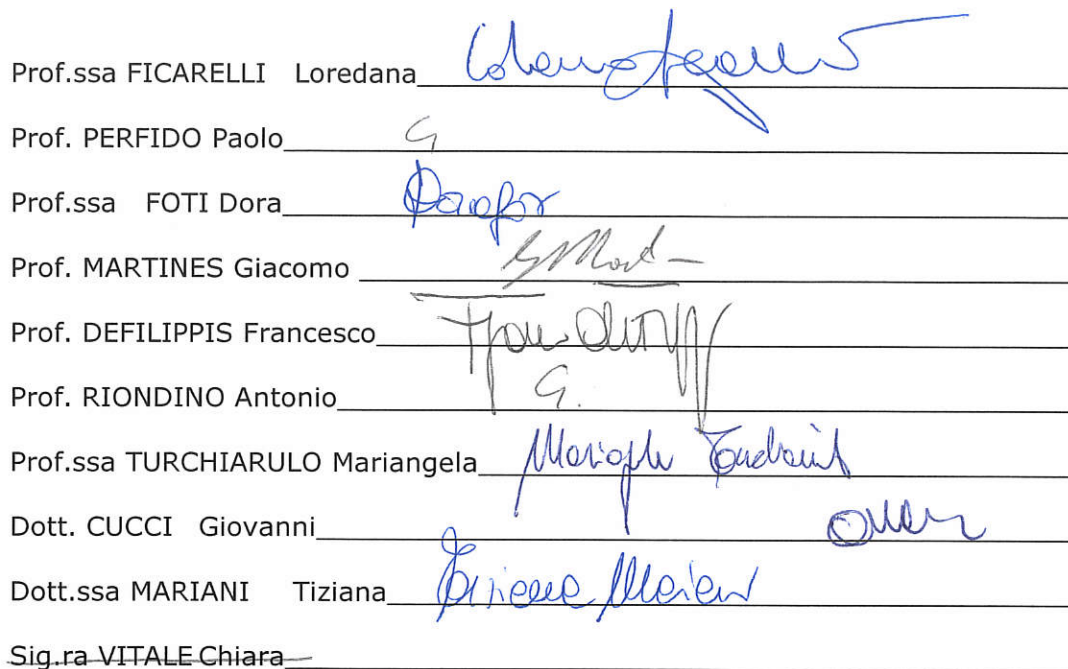 Prof.ssa FICARELLI Loredana
Prof. PERFIDO Paolo G
Prof.ssa FOTI Dora
Prof. MARTINES Giacomo
Prof. DEFILIPPIS Francesco
Prof. RIONDINO Antonio G.
Prof.ssa TURCHIARULO Mariangela
Dott. CUCCI Giovanni
Dott.ssa MARIANI Tiziana
Sig.ra VITALE Chiara